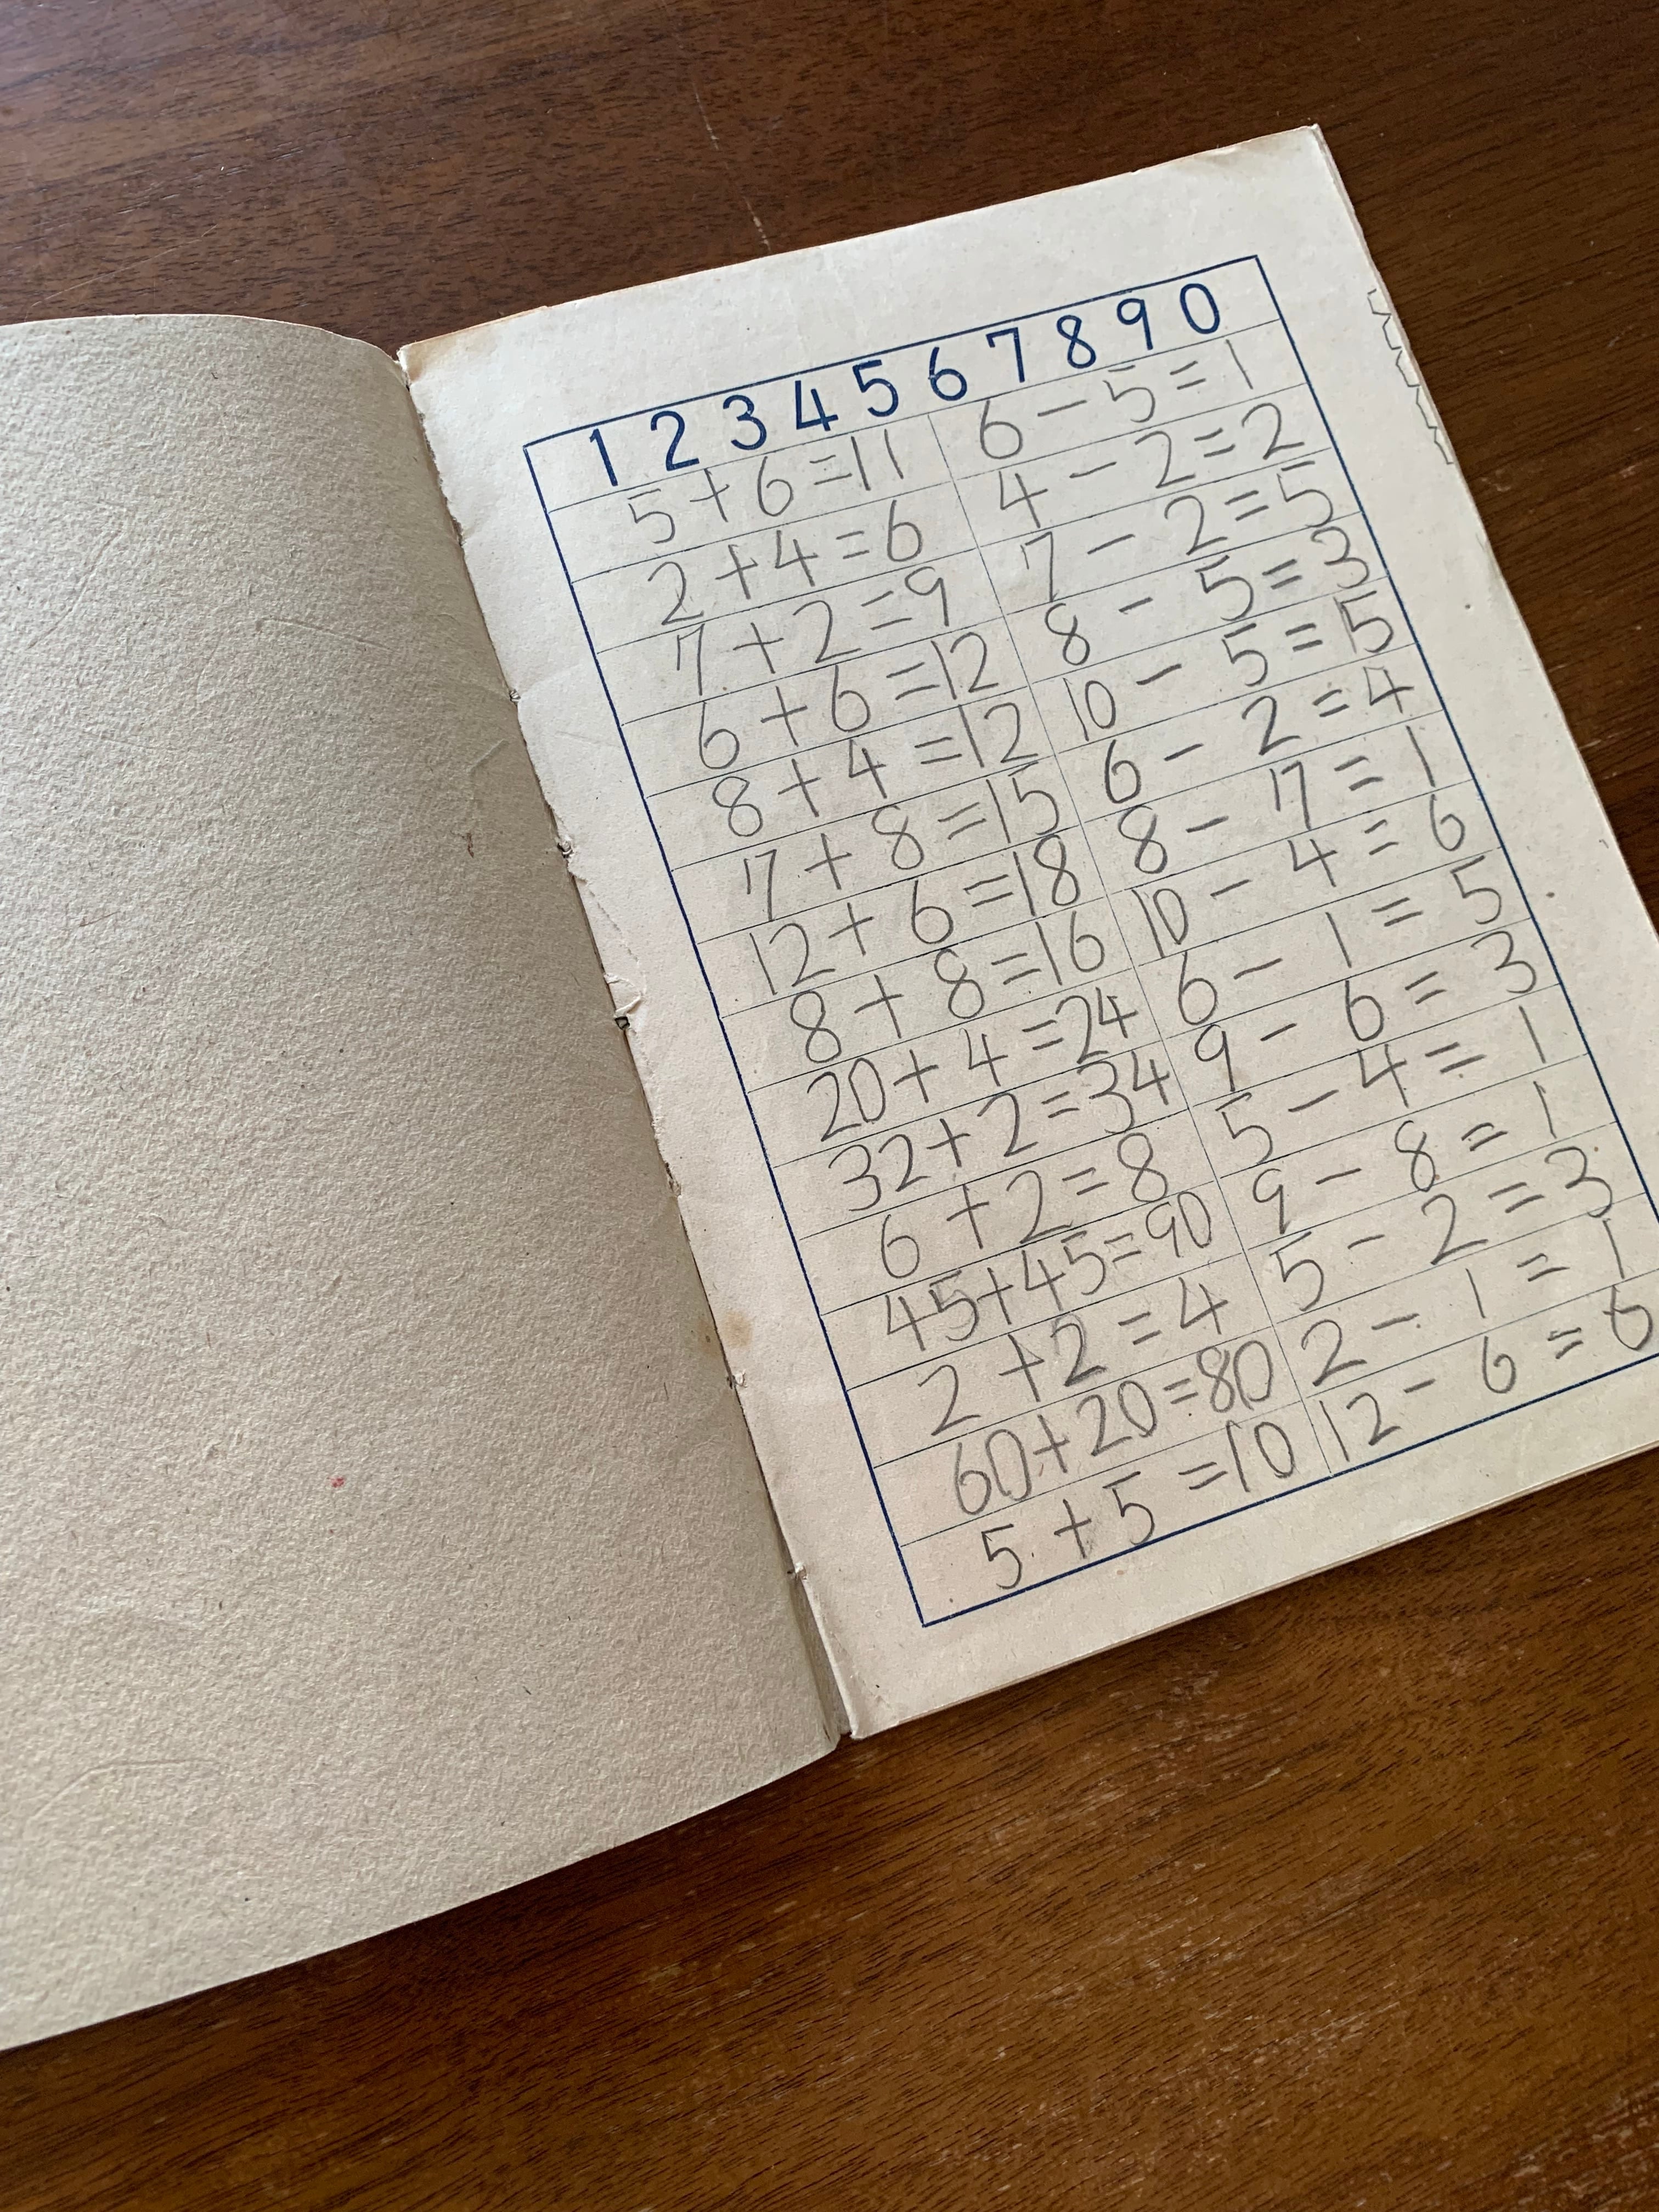 1 2 3 4 5 6 7 8 9 0
5+6=11
2+4=6
7+2=9
6+6=12
8+4=12
7+8=15
12+6=18
8+8=16
20+4=24
32+2=34
6+2=8
45+45=90
2+2=4
60+20=80
5+5=10
6-5=1
4-2=2
7-2=5
8-5=3
10-5=5
6-2=4
8-7=1
10-4=6
6-1=5
9-6=3
5-4=1
9-8=1
5-2=3
2-1=1
12-6=6